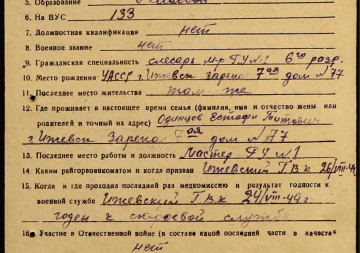 5. Образование
6. На ВУС 133
7. Должностная квалификация нет
8. Военное звание нет
9. Гражданская специальность слесарь м-р РУ №1 6го разр.
10. Место рождения УАССР г. Ижевск Зарека 7ая дом №77
11. Последнее место жительства там же
12. Где проживает в настоящее время семья (фамилия, имя и отчество жены или
родителей и точный их адрес) Одинцов Евстафи Титович
г. Ижевск Зарека 7ая дом №77
13. Последнее место работы и должность Мастер РУ №1
14. Каким райгорвоенкоматом и когда призван Ижевский ГВК 26/VIII-49
15. Когда и где проходил последний раз медкомиссию и результат годности к
военной службе Ижевский ГВК 24/VIII-49 г.
годен к строевой службе
16. Участие в Отечественной войне (в составе какой последней части и в качеств
нет